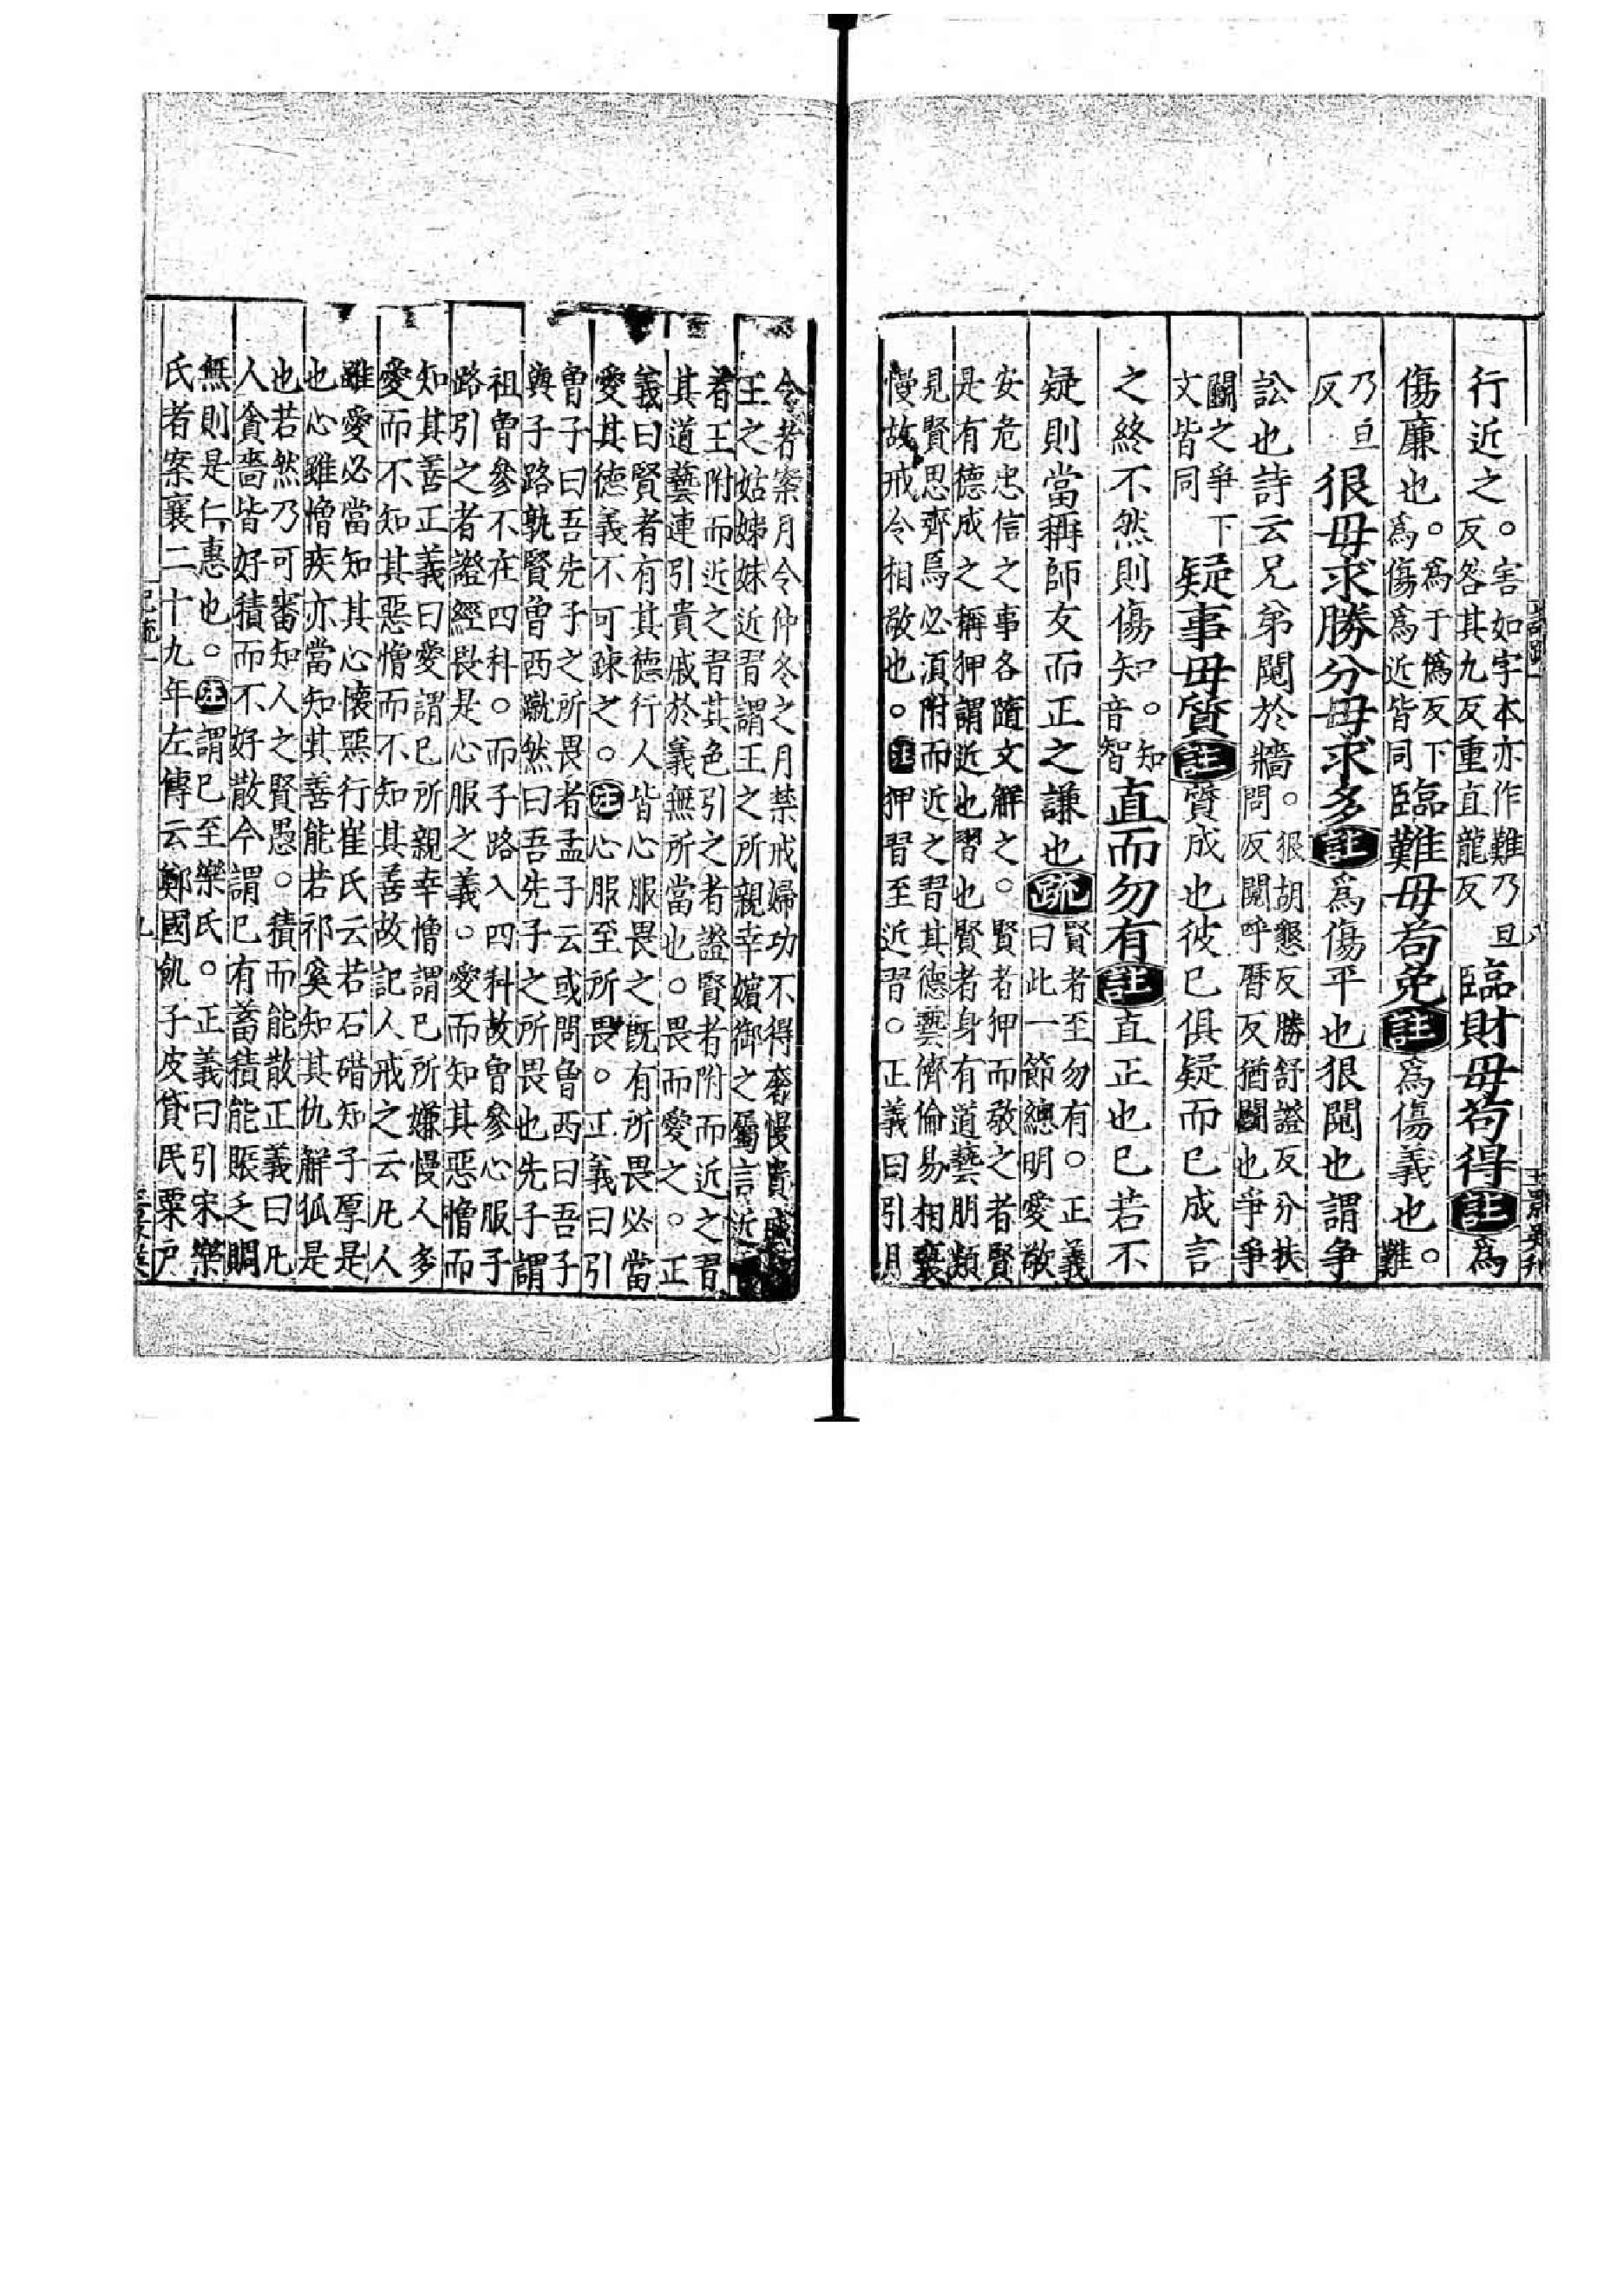 行近之。害如字本亦作難乃旦
反咎其九反重直龍反
臨財毋苟得註為
傷廉也。為于偽反下
為傷為近皆同
臨難毋苟免註為傷義也。難
乃旦
反
很毋求勝分毋求多註為傷平也很鬩也謂爭
訟也詩云兄弟鬩於牆。很胡懇反勝舒證反分扶
問反鬩呼曆反猶鬬也爭爭
鬬之爭下
文皆同
疑事毋質註質成也彼已俱疑而已成言
之終不然則傷知。知
音智
直而勿有註直正也已若不
疑則當稱師友而正之謙也疏賢者至勿有。正義
曰此一節緫明愛敬
安危忠信之事各隨文解之。賢者狎而敬之者賢
是有德成之稱狎謂近也習也賢者身有道藝朋類
見賢思齊焉必須附而近之習其德藝儕倫易相褻
慢故戒令相敬也。註狎習至近習。正義曰引月
令者案月令仲冬之月禁戒婦功不得奢慢貴戚
王之姑姊妹近習謂王之所親幸嬪御之屬言近
者王附而近之習其色引之者證賢者附而近之習
其道藝連引貴戚於義無所當也。畏而愛之。正
義曰賢者有其德行人皆心服畏之旣有所畏必當
愛其德義不可疎之。注心服至所畏。正義曰引
曾子曰吾先子之所畏者孟子云或問曾西曰吾子
與子路孰賢曾西蹴然曰吾先子之所畏也先子謂
祖曾參不在四科。而子路入四科故曾參心服子
路引之者證經畏是心服之義。愛而知其惡憎而
知其善正義曰愛謂已所親幸憎謂已所嫌慢人多
愛而不知其惡憎而不知其善故記人戒之云凡人
雖愛必當知其心懷惡行崔氏云若石碏知子厚是
也心雖憎疾亦當知其善能若祁奚知其仇解狐是
也若然乃可審知人之賢愚。積而能散正義曰凡
人貪嗇皆好積而不好散今謂已有蓄積能賑乏賙
無則是仁惠也。注謂已至樂氏。正義曰引宋樂
氏者案襄二十九年左傳云鄭國飢子皮貸民粟戶